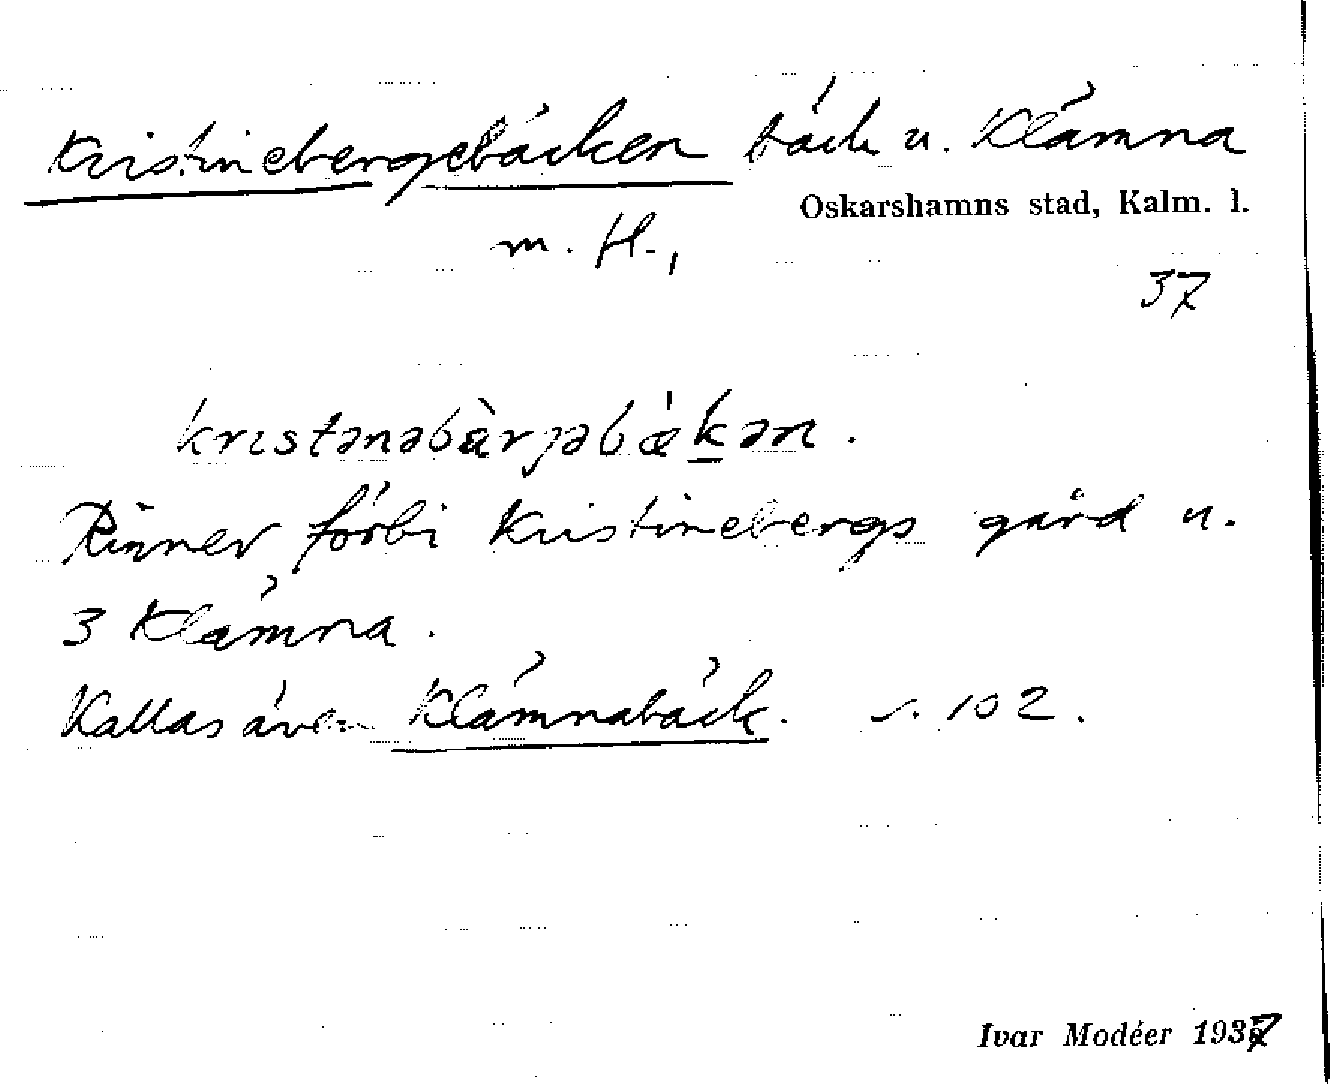 Kristinebergsbäcken bäck u. Klämna
Oskarshamns stad, Kalm. l.
m. fl.,
37
krıstənəbàrjəbækən.
Rinner förbi Kristinebergs gård u.
3 Klämna.
Kallas även Klämnabäck. s. 102.
Ivar Modéer 1937